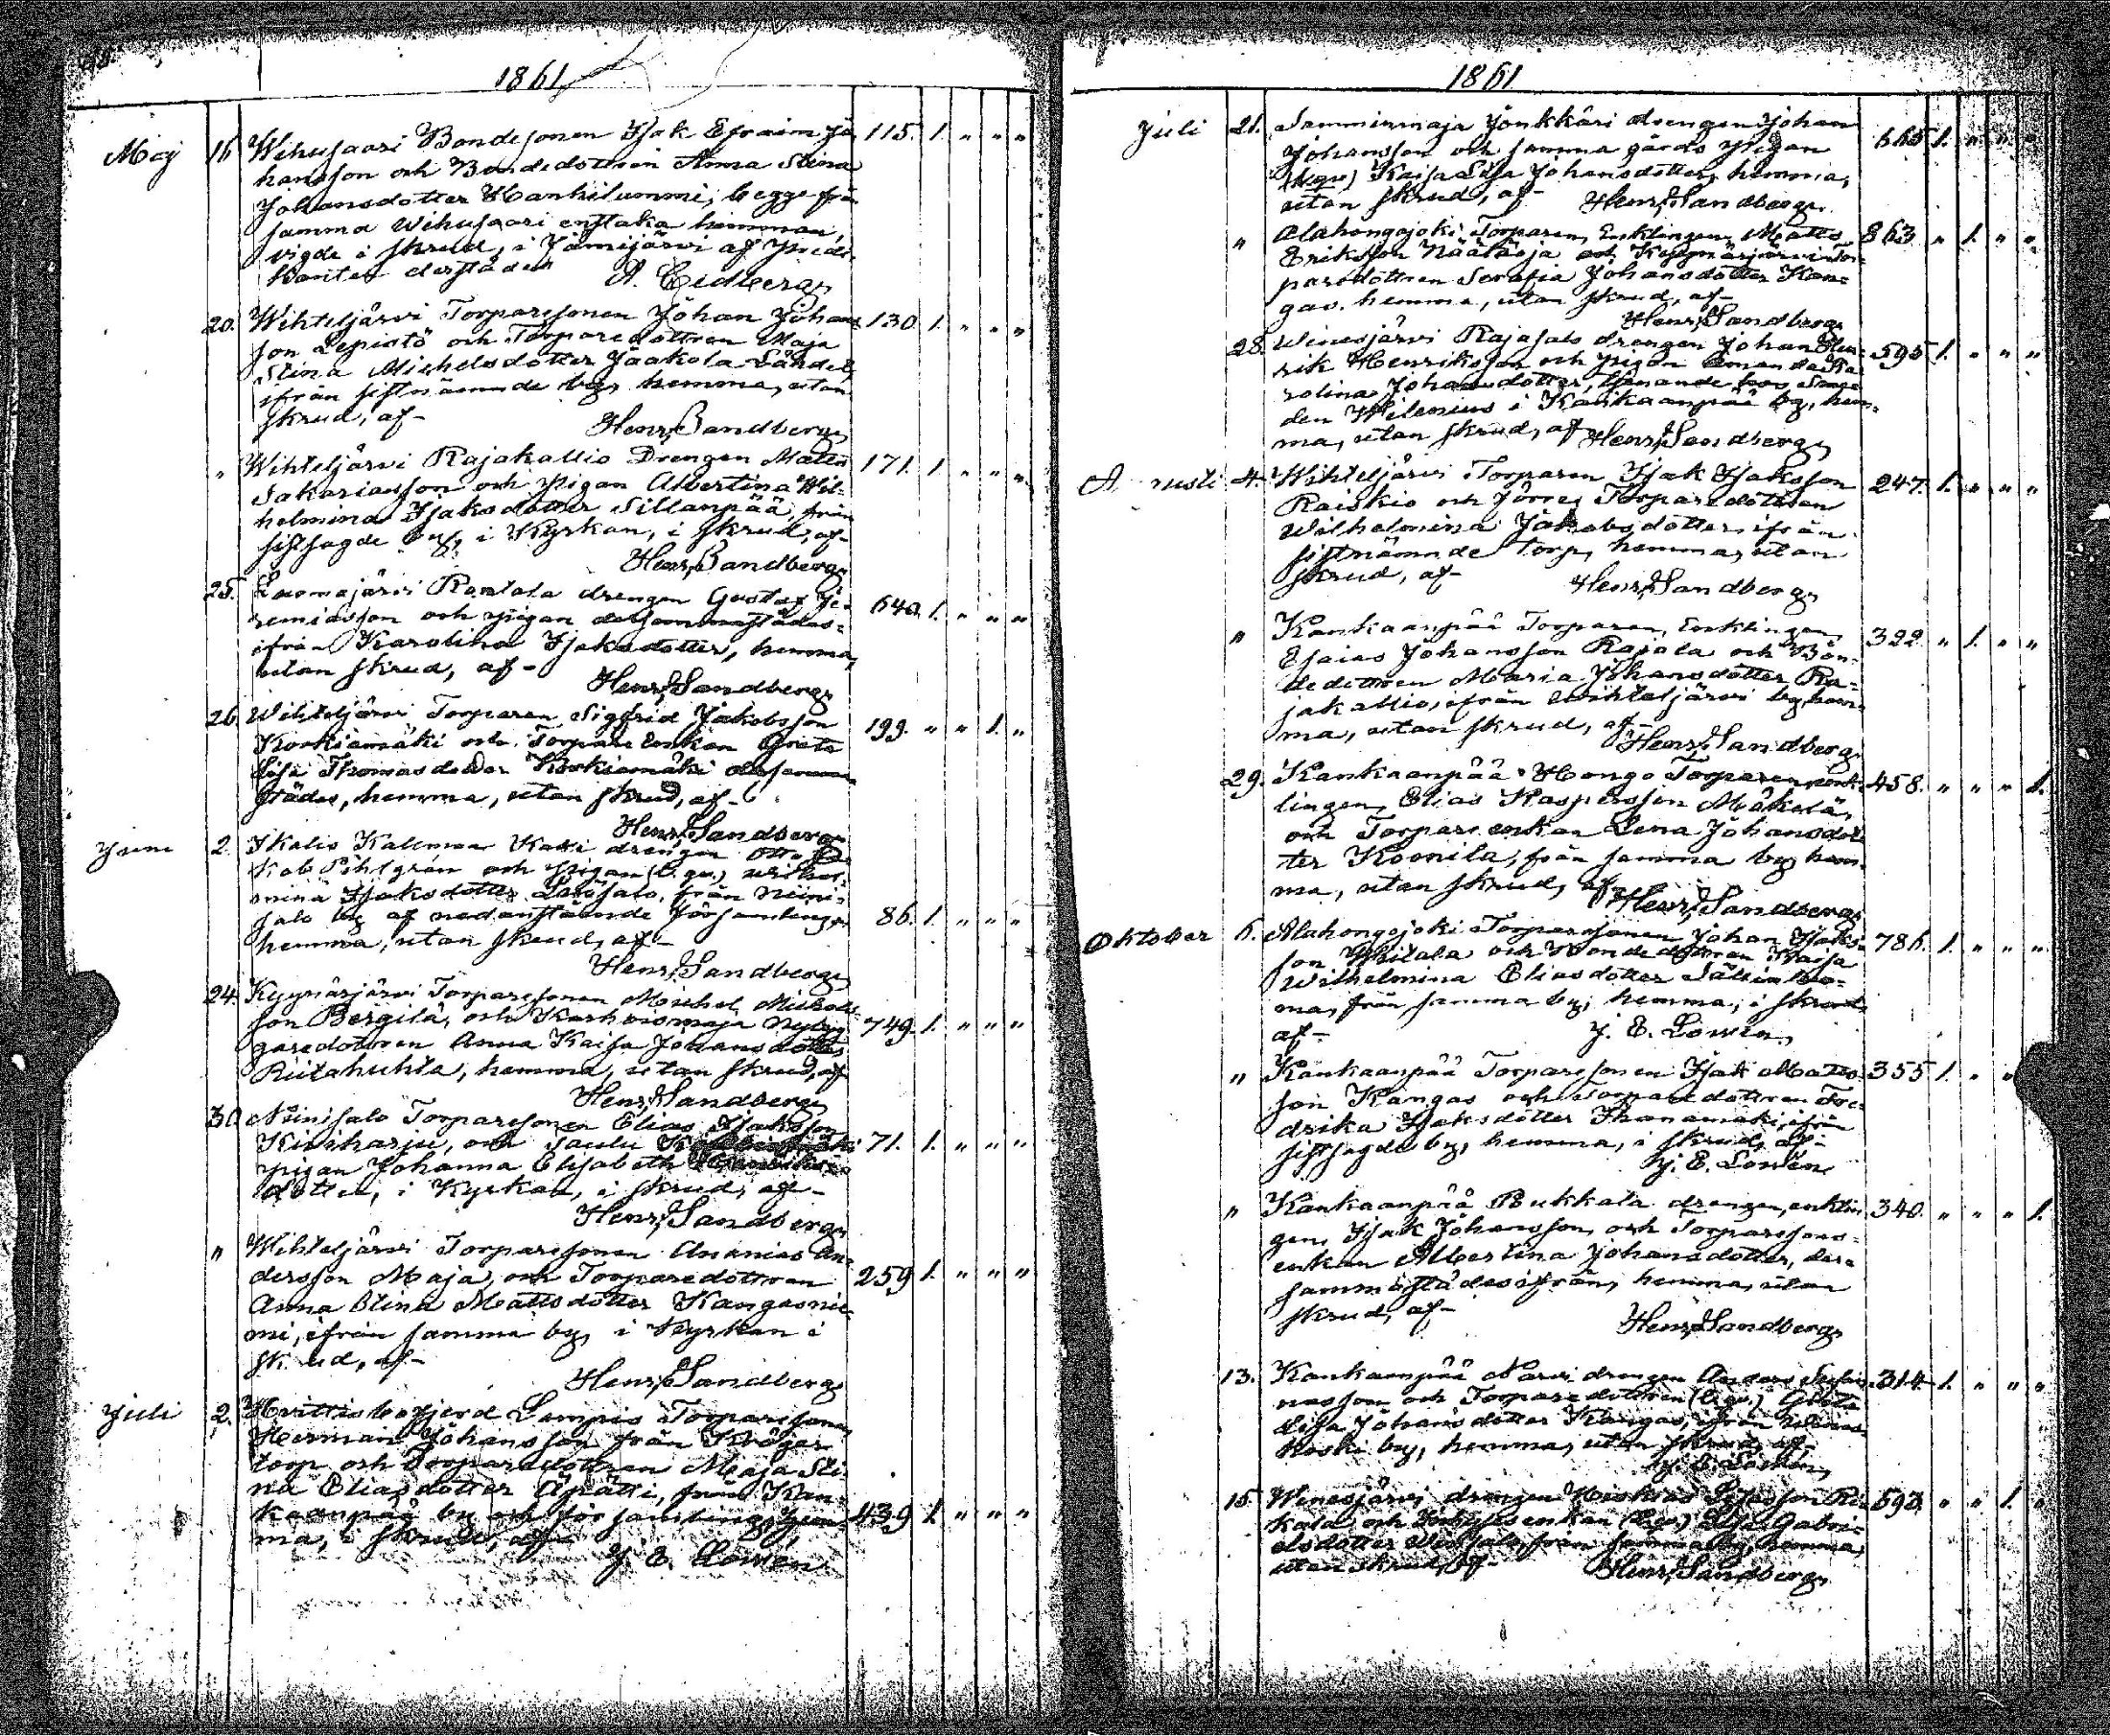 1861
Maj 16 Wihusaari Bondesonen Isak Efraim Jo 115. 1. " " "
hansson och Bondedottren Anna Stina
Johansdotter Hanhilummi, begge från
samma Wihusaari enstaka hemman,
vigde i skrud, i Jämijärvi af Predi-
kanten derstädes
A. Cedberg
20. Wihteljärvi Torparesonen Johan Johans 130 1. " " "
son Lepistö och Torparedottren Maja
Stina Michelsdotter Jaakola Lähde,
ifrån sistnämnde by, hemma, utan
skrud, af-
Henr. Sandberg
" Wihteljärvi Rajakallio Drengen Matts 171. 1 " " "
Sakariasson och pigan Albertina Wil-
helmina Isaksdotter Sillanpää, från
sistsagde by, i Kyrkan, i skrud, af-
Henr. Sandberg
25. Luomajärvi Rantala drengen Gustaf Je- 640. 1. " " "
remiasson och pigan dersammastädes-
ifrån Karolina Isaksdotter, hemma,
utan skrud, af-
Henr. Sandberg
26 Wihteljärvi Torparen Sigfrid Jakobsson 199. " " 1. "
Korkiamäki och Torpare Enkan Greta
Lisa Thomasdotter Korkiamäki dersamma
städes, hemma, utan skrud, af-
Henr. Sandberg
Juni 2 Ikalis Kallmaa drengen Otto Ja
kob Pihlgrén och pigan (b. qv.) Wilhel-
mina Isaksdotter från Niini-
salo by af nedanstående församling,
hemma, utan skrud, af- 86. 1. " " "
Henr. Sandberg
24. Kyynärjärvi Torparesonen Michel Michels
son Bergilä, och Karhoismaja Nybyg 749. 1. " " "
garedottren Anna Kaisa Johansdotter
Riitahuhta, hemma, utan skrud, af
Henr. Sandberg
30. Niinisalo Torparesonen Elias Isaksson
Kiviharju, och 71. 1. " " "
pigan Johanna Elisabeth
dotter, i Kyrkan, i skrud, af-
Henr. Sandberg
" Wihteljärvi Torparesonen Ananias An-
dersson Maja, och Torparedottren 259 1. " " "
Anna Stina Mattsdotter Kangasnie-
mi, ifrån samma by, i Kyrkan i
sk ud, af-
Henr. Sandberg
Juli 2. Hvittisbofjerd Lampis Torparesonen
Herman Johansson från Kröjar
torp och Torparedottren Maja Sti-
na Eliasdotter Äpätti, från Kan-
kaanpää by och församling, hem- 439 1. " " "
ma, i skrud, af-
J. E. Lowen
1861
Juli 21. Samminmaja Jonkkäri drengen Johan 665 1. " " "
Johansson och samma gårds pigan
(b. qv.) Kaisa Lisa Johansdotter, hemma,
utan skrud, af- Henr. Sandberg
" Alahongojoki Torparen, Enklingen Matts 863 " 1. " "
Eriksson Näätäoja och Kyynärjärvi Tor-
paredottren Serafia Johansdotter Kan-
gas. hemma, utan skrud, af-
Henr. Sandberg
28. Winesjärvi Rajasalo drengen Johan Hen- 595 1. " " "
rik Henriksson och pigan Amanda Ka
rolina Johansdotter, tjenande hos
den Hilenius i Kankaanpää by, hem-
ma, utan skrud, af Henr. Sandberg
A usti 4. Wihteljärvi Torparen Isak Isaksson 247. 1. " " "
Raiskio och Torparedottren
Wilhelmina Jakobsdotter ifrån
sistnämnde torp, hemma, utan
skrud, af-
Henr. Sandberg
" Kankaanpää Torparen, Enklingen 322 " 1. " "
Esaias Johansson Rajala och Bon-
dedottren Maria Johansdotter Ra-
jakallio, ifrån Wihteljärvi by, hem-
ma, utan skrud, af-
Henr. Sandberg
29. Kankaanpää Hongo Torparen, enk- 458. " " " 1.
lingen, Elias Kaspersson Mäkelä,
och Torpare enkan Lena Johansdot
ter Koonila, från samma by, hem-
ma, utan skrud, af-
Henr. Sandberg
Oktober 6. Alahongojoki Torparesonen Johan Isaks- 786. 1. " " "
son Yhitala och Bondedottren Kaisa
Wilhelmina Eliasdotter
ma, från samma by, hemma, i skrud
af-
J. E. Lowen,
" Kankaanpää Torparesonen Isak Matts 355 1. " "
son Kangas och Torparedottren Fre-
drika Isaksdotter Ihanamäki, ifrån
sistsagde by, hemma, i skrud, af-
J. E. Lowen
" Kankaanpää Pukkala drengen, enklin 340. " " " 1.
gen, Isak Johansson, och Torparesons-
enkan Albertina Johansdotter, der-
sammastädes ifrån, hemma, utan
skrud, af-
Henr. Sandberg
13. Kankaanpää Narvi drengen Anders 314 1. " " "
nasson och Torparedottren (b. qv.) Greta
Lisa Johansdotter Kangas, ifrån
koski by, hemma, utan skrud, af-
J. E. Lowen,
15 Winesjärvi drengen 593. " " 1. "
kala och enkan (b. qv.) Lisa Gabri-
elsdotter från samma by, hemma,
utan skrud, af- Henr. Sandberg